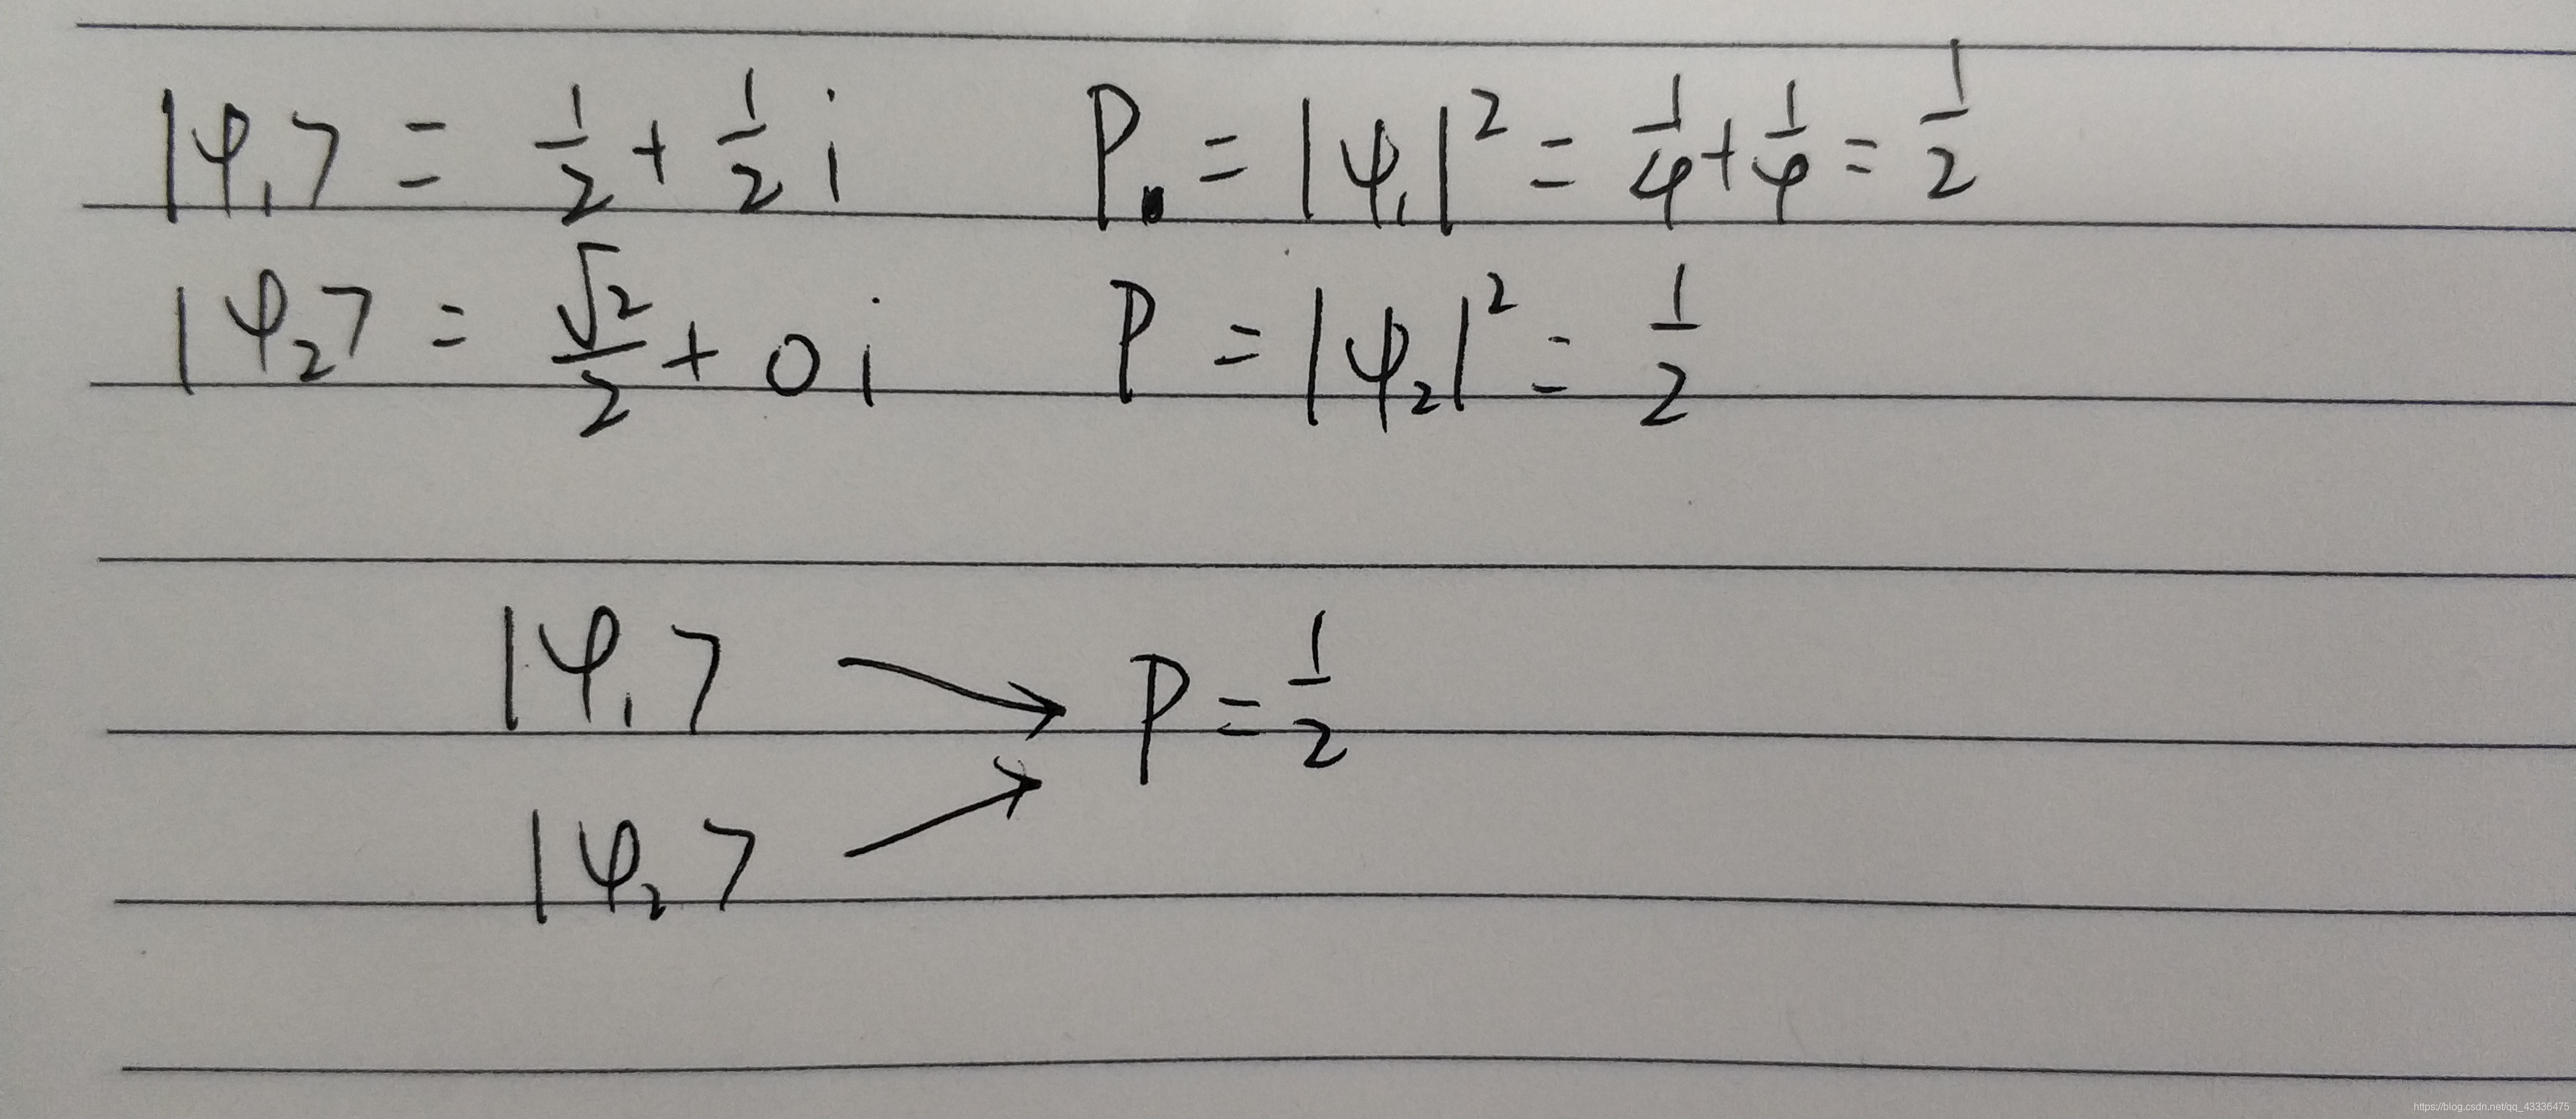 |φ₁> = 1/2 + 1/2 i    P. = |ψ₁|² = 1/4 + 1/4 = 1/2
|φ₂> = √2/2 + 0i    P = |ψ₂|² = 1/2
|φ₁>
P = 1/2
|φ₂>
https://blog.csdn.net/qq_43336475